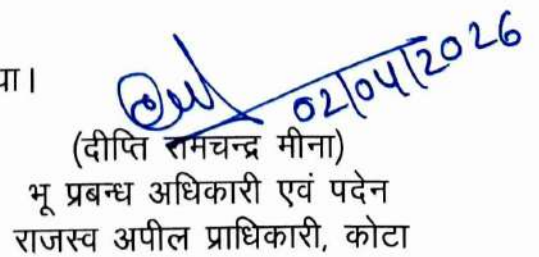 या।
02/04/2026
(दीप्ति रामचन्द्र मीना)
भू प्रबन्ध अधिकारी एवं पदेन
राजस्व अपील प्राधिकारी, कोटा